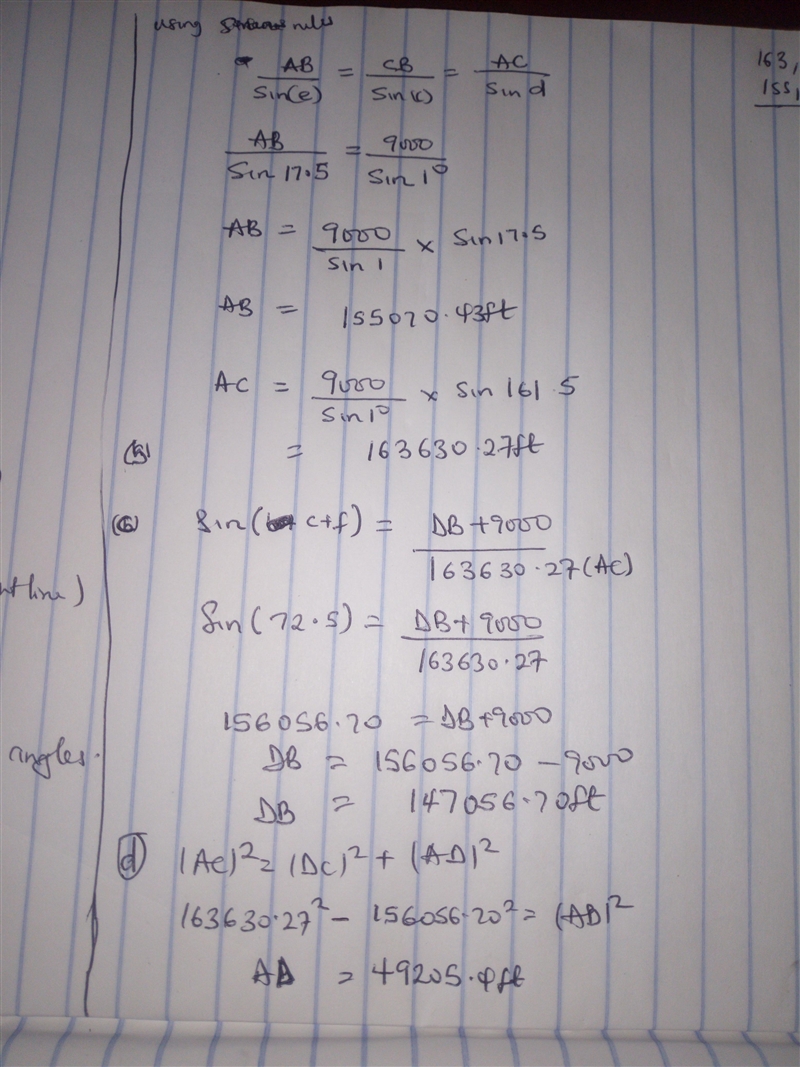 using rules
AB/Sin(e) = CB/Sin(c) = AC/Sin d
163,
155,
AB/Sin 17.5 = 9000/Sin 1°
AB = 9000/Sin 1 × Sin 17.5
AB = 155070.43ft
AC = 9000/Sin 1° × Sin 161.5
= 163630.27ft
Sin( c+f) = DB+9000/163630.27(AC)
line)
Sin(72.5) = DB+9000/163630.27
156056.70 = DB+9000
angles.
DB = 156056.70 - 9000
DB = 147056.70ft
(d) (AC)² = (DC)² + (AD)²
163630.27² - 156056.20² = (AD)²
AD = 49205.4ft